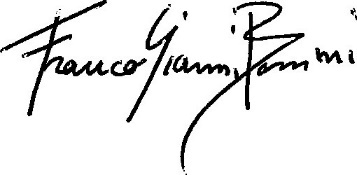 Franco Gianni Bonini